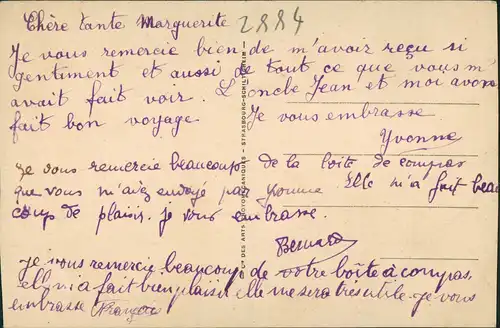 Chère tante Marguerite 2884
Je vous remercie bien de m'avoir reçu si
gentiment et aussi de tout ce que vous m'
avait fait voir. L'oncle Jean et moi avons
fait bon voyage Je vous embrasse
Yvonne
Je vous remercie beaucoup de la boîte de compas
que vous m'avez envoyé par Yvonne Elle m'a fait beau
coup de plaisir. je vous embrasse.
Bernard
je vous remercie beaucoup de votre boîte à compas,
elle m'a fait bien plaisir elle me sera très utile. je vous
embrasse François
DES ARTS PHOTOMÉCANIQUES - STRASBOURG-SCHILTIGHEIM